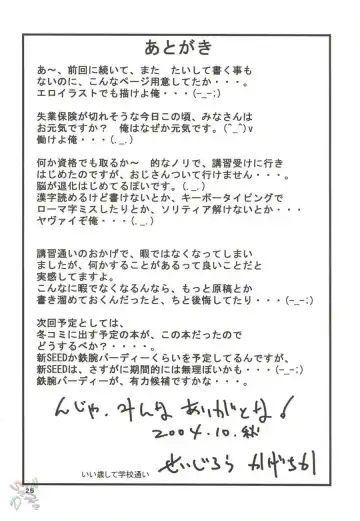 あとがき
あ～、前回に続いて、また たいして書く事も
ないのに、こんなページ用意してたか・・・。
エロイラストでも描けよ俺・・・(-_-;)
失業保険が切れそうな今日この頃、みなさんは
お元気ですか？ 俺はなぜか元気です。(^_^)v
働けよ俺・・・(._.)
何か資格でも取るか～ 的なノリで、講習受けに行き
はじめたのですが、おじさんついて行けません・・・。
脳が退化はじめてるぽいです。(._.)
漢字読めるけど書けないとか、キーボータイピングで
ローマ字ミスしたりとか、ソリティア解けないとか・・・
ヤヴァイぞ俺(._.)
講習通いのおかげで、暇ではなくなってしまい
ましたが、何かすることがあるって良いことだと
実感してますよ。
こんなに暇でなくなるんなら、もっと原稿とか
書き溜めておくんだったと、ちと後悔してたり・・・(-_-;)
次回予定としては、
冬コミに出す予定の本が、この本だったので
どうするべか？・・・・。
新SEEDか鉄腕バーディーくらいを予定してるんですが、
新SEEDは、さすがに期間的には無理ぽいかも・・・(-_-;)
鉄腕バーディーが、有力候補ですかな・・・。
んじゃ、みんな ありがとな!
2004.10.秋
せいじろう かげちか
いい歳して学校通い
25